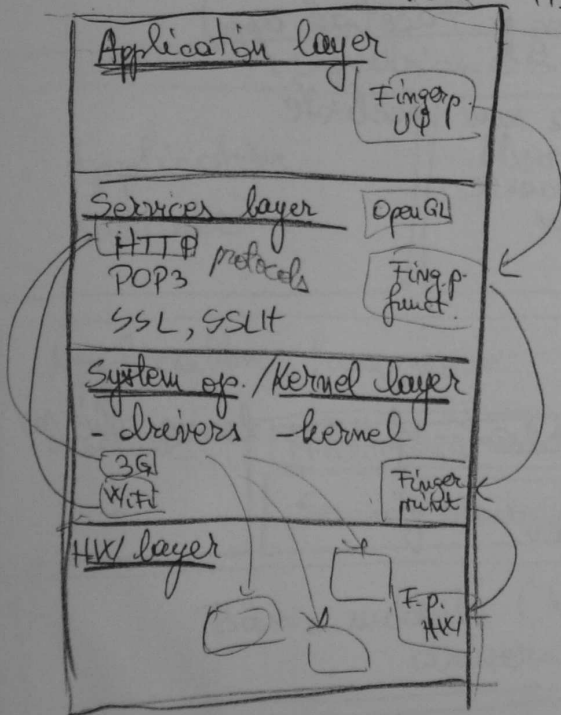 Application layer
Fingerp.
UI
Services layer
OpenGL
HTTP protocols
POP3
SSL, SSLH
Fing.p.
funct.
System op. / Kernel layer
- drivers - kernel
3G
WiFi
Finger
print
HW layer
F.p.
HW